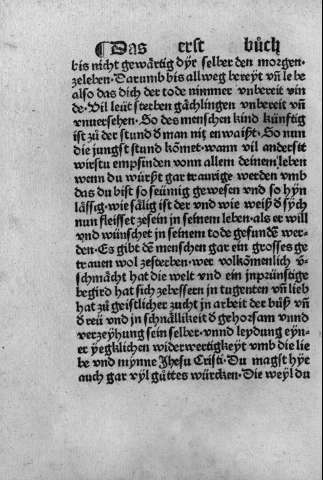 ¶ Das erst bůch
bis nicht gewärtig dye selber den morgen
zeleben. Darumb bis allweg bereyt vñ lebe
also das dich der tode nimmer vnbereit vin
de. Vil leüt sterben gächlingen vnbereit vñ
vnuersehen. So des menschen kind künftig
ist zů der stund d̕ man nit en waißt. So nun
die jungst stund kõmet. wann vil anderst
wirstu empfinden vonn allem deinem leben
wenn du würst gar traurige werden vmb
das du bist so seümig gewesen vnd so hyn
lässig. wie sälig ist der vnd wie weiß d̕ sych
nun fleisset zesein in seinem leben. als er will
vnd wünschet in seinem tode gefundẽ wer-
den. Es gibt dẽ menschen gar ein grosses ge
trauen wol zesterben. wer volkõmenlich v̕-
schmächt hat die welt vnd ein jnprünstige
begird hat sich zebessern in tugenten vñ lieb
hat zů geistlicher zucht jn arbeit der bůß vñ
d̕ reü vnd jn schnällikeit d̕ gehorsam vnnd
verzeyhung sein selber. vnnd leydung eyn-
er yegklichen widerwertigkeyt vmb die lie
be vnd mynne Jhesu Cristi. Du magst hye
auch gar vyl gůttes würcken. Die weyl du